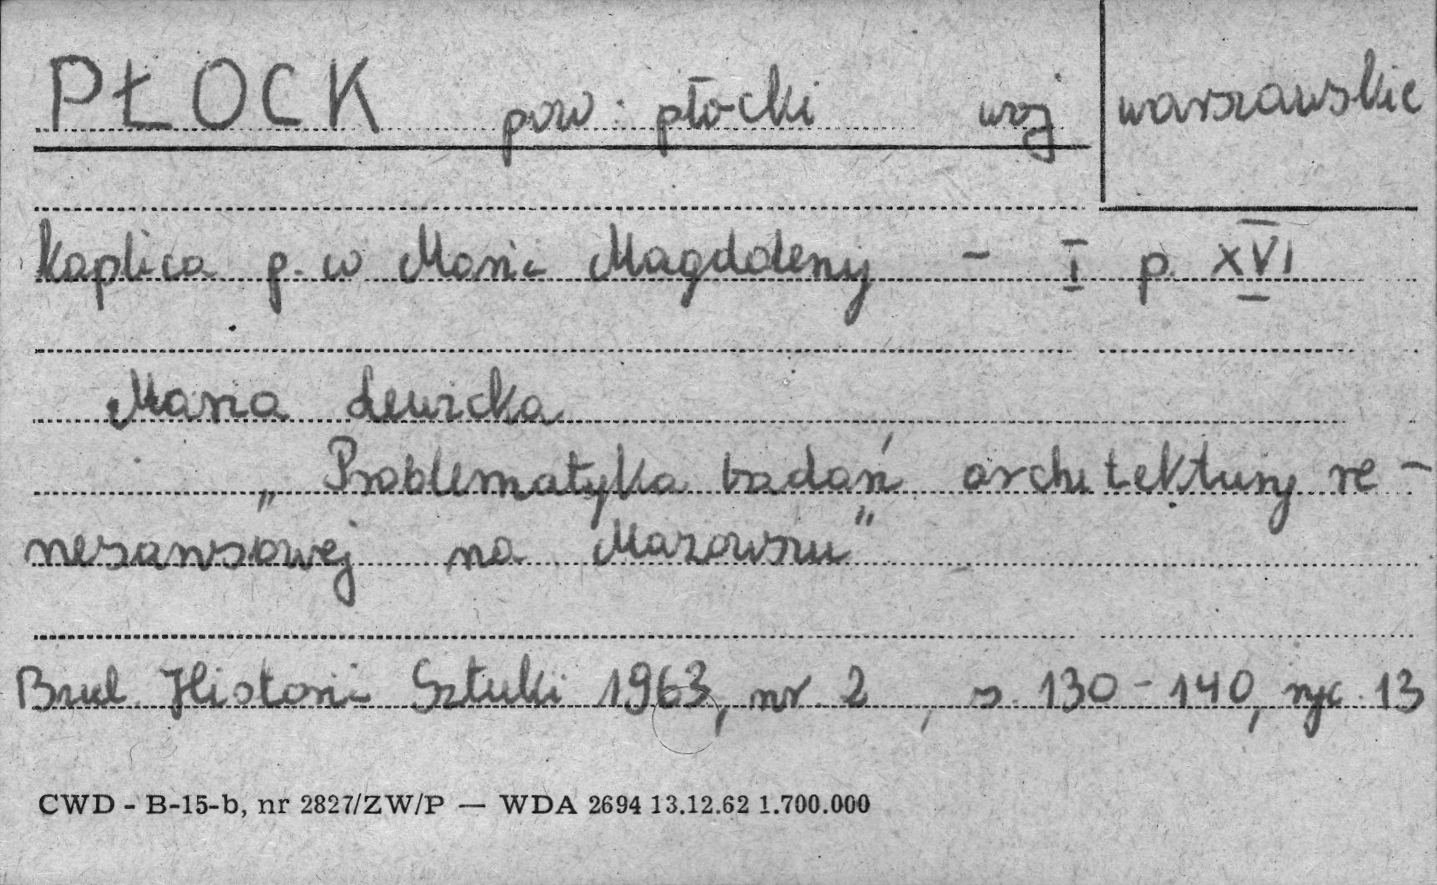 PŁOCK pow: płocki woj warszawskie
Kaplica p.w Marii Magdaleny - I p. XVI
Maria Lewicka
„Problematyka badań architektury re-
nesansowej na Mazowszu"
Biul. Historii Sztuki 1963, nr. 2, s. 130-140, ryc. 13
CWD - B-15-b, nr 2827/ZW/P — WDA 2694 13.12.62 1.700.000